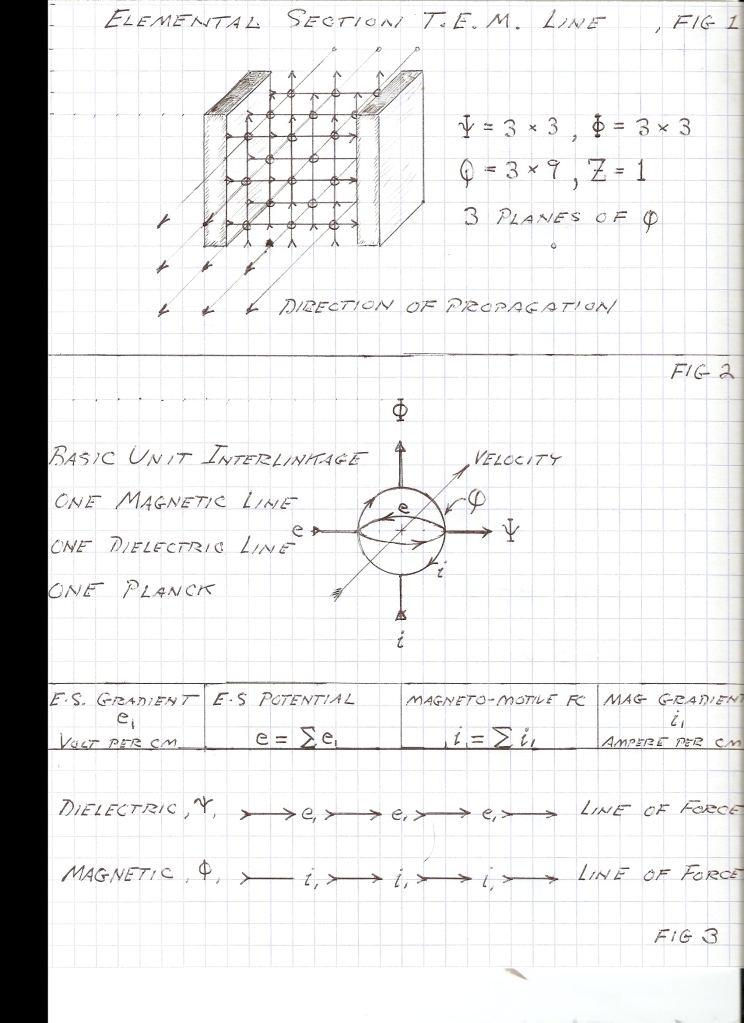 ELEMENTAL SECTION T.E.M. LINE , FIG 1
Ψ = 3 × 3 , Φ = 3 × 3
Q = 3 × 9 , Z = 1
3 PLANES OF φ
DIRECTION OF PROPAGATION
FIG 2
Φ
BASIC UNIT INTERLINKAGE
VELOCITY
ONE MAGNETIC LINE
e φ
e Ψ
ONE DIELECTRIC LINE
i
ONE PLANCK
i
E.S. GRADIENT e₁ VOLT PER CM.
E.S POTENTIAL e = Σe₁
MAGNETO-MOTIVE FC i = Σi₁
MAG GRADIENT i₁ AMPERE PER CM
DIELECTRIC, Ψ, e₁ e₁ e₁ LINE OF FORCE
MAGNETIC, Φ, i₁ i₁ i₁ LINE OF FORCE
FIG 3